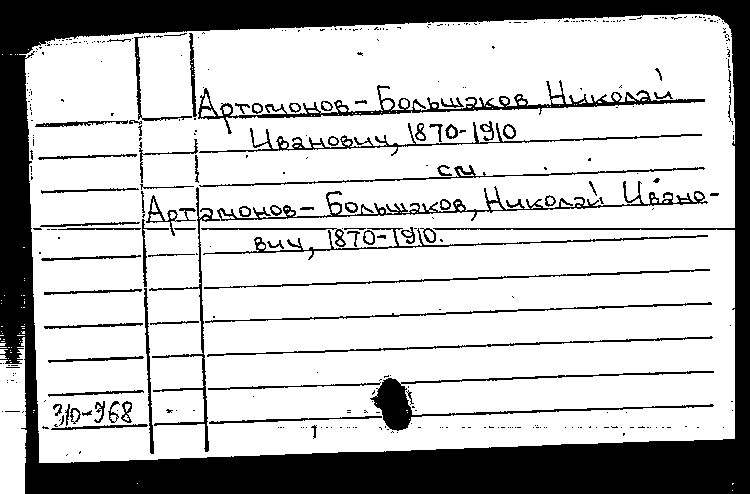 Артомонов-Большаков, Николай
Иванович, 1870-1910
см.
Артамонов- Большаков, Николай Ивано-
вич, 1870-1910.
310-968
1